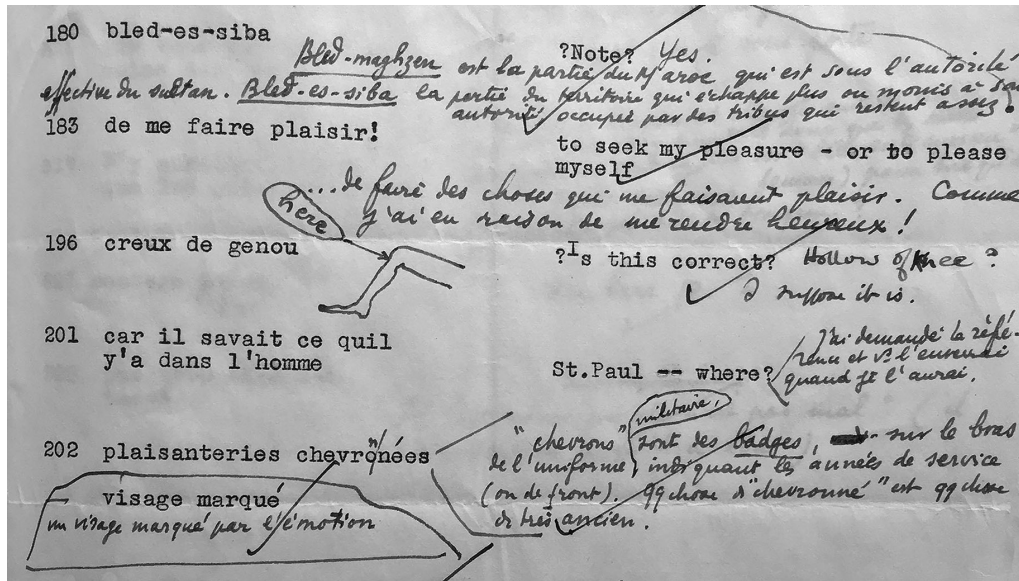 180 bled-es-siba
?Note? Yes.
Bled-maghzen est la partie du Maroc qui est sous l'autorité
effective du sultan. Bled-es-siba la partie du territoire qui échappe plus ou moins à son
autorité, occupée par des tribus qui restent assez
183 de me faire plaisir!
to seek my pleasure - or to please
myself
...de faire des choses qui me faisaient plaisir. Comme
j'ai eu raison de me rendre heureux!
here
196 creux de genou
?Is this correct? Hollow of knee?
I suppose it is.
201 car il savait ce quil
y'a dans l'homme
St.Paul -- where?
J'ai demandé la réfé-
rence et vs l'enverrai
quand je l'aurai.
militaire,
202 plaisanteries chevronnées
"chevrons" sont des badges, sur le bras
de l'uniforme, indiquant les années de service
(ou de front). qq chose d"chevronné" est qq chose
de très ancien.
visage marqué
un visage marqué par l'émotion